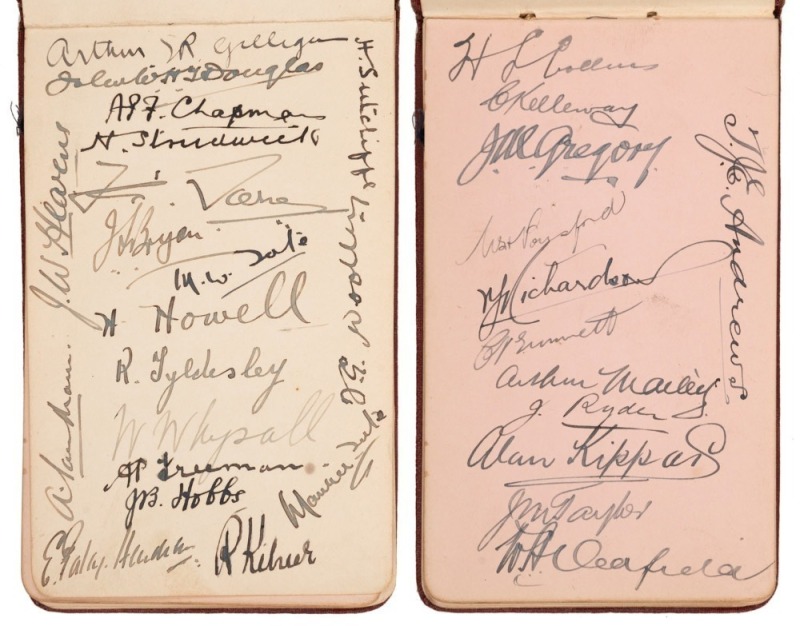 Arthur E R Gilligan
Johnny W H T Douglas
A P F. Chapman
H. Strudwick
J. L. Bryan
M. W. Tate
H Howell
R. Tyldesley
W Whysall
A P Freeman
J B. Hobbs
E. Patsy. Hendren
R Kilner
J. W. Hearne
A. Sandham.
H. Sutcliffe
F. E. Woolley
Maurice Tate
H L Collins
C Kelleway
J M Gregory
W H Ponsford
V Y Richardson
Arthur Mailey
J. Ryder
Alan Kippax
J M Taylor
W A Oldfield
T. J. E. Andrews